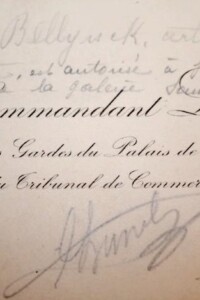 Bellynck, art
est autorisé à
à la galerie
ommandant
Gardes du Palais de
Tribunal de Commer